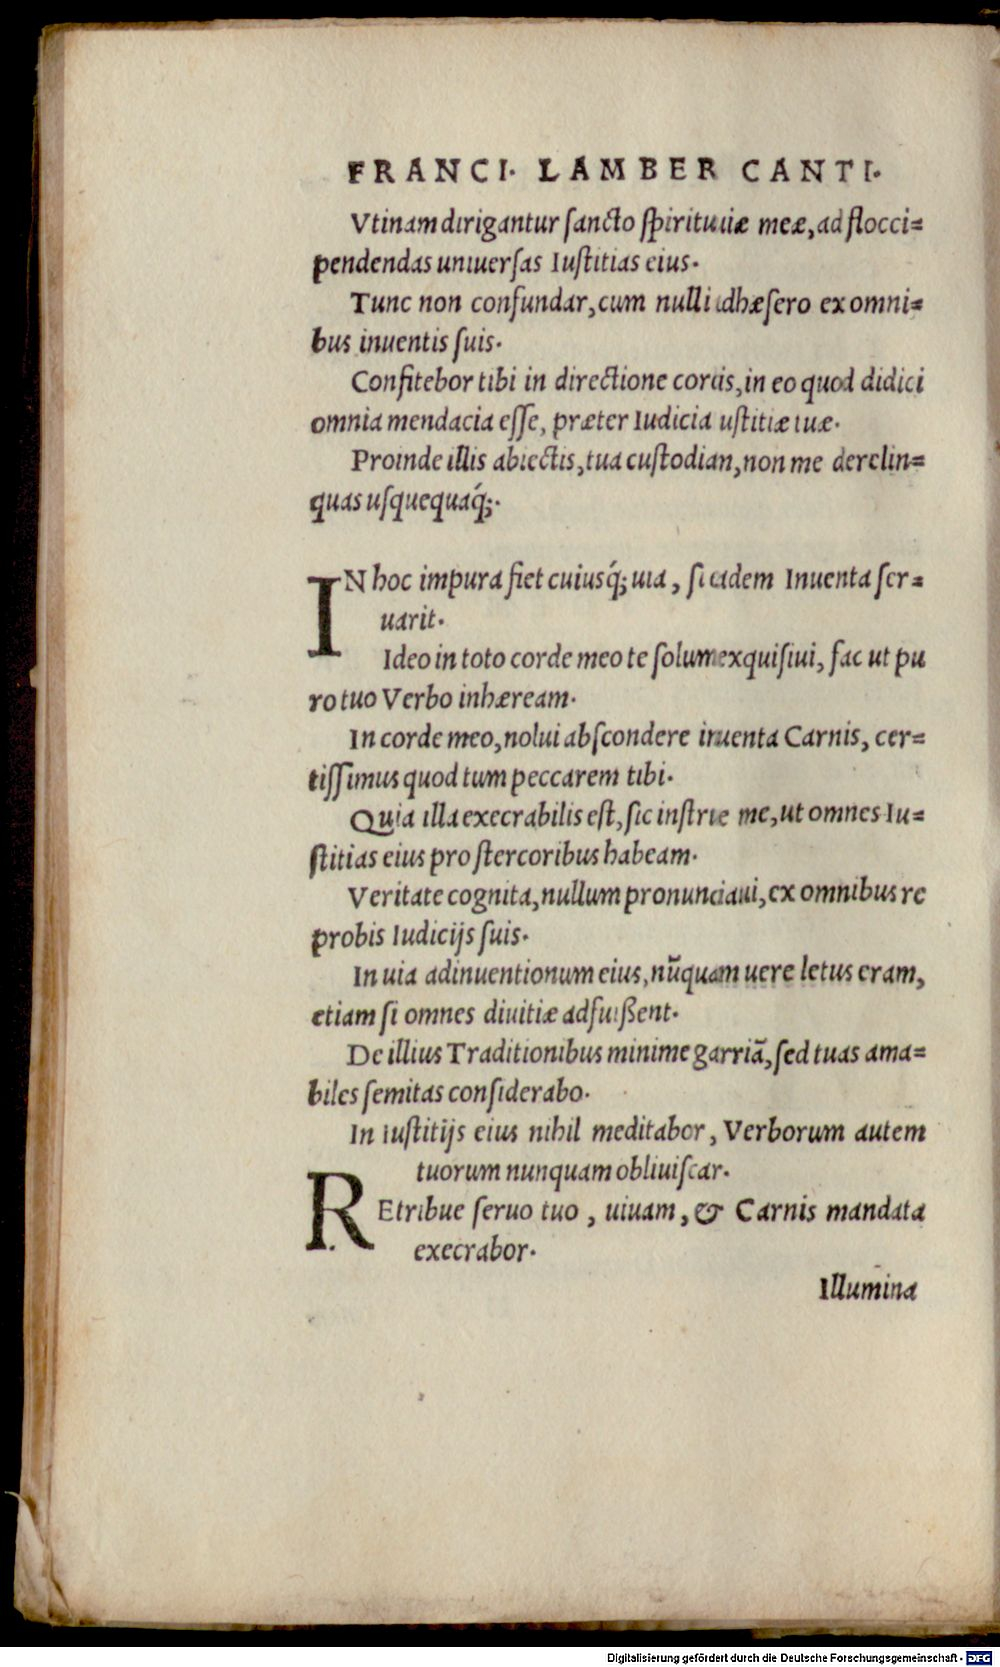 FRANCI. LAMBER CANTI.
Vtinam dirigantur ſancto ſpiritu uiæ meæ, ad flocci=
pendendas uniuerſas Iuſtitias eius.
Tunc non confundar, cum nulli adhæſero ex omni=
bus inuentis ſuis.
Confitebor tibi in directione cordis, in eo quod didici
omnia mendacia eſſe, præter Iudicia uſtitiæ tuæ.
Proinde illis abiectis, tua cuſtodian, non me derelin=
quas uſquequaq́;.
IN hoc impura fiet cuiusq́; uia, ſi eadem Inuenta ſer=
uarit.
Ideo in toto corde meo te ſolum exquiſiui, fac ut pu
ro tuo Verbo inhæream.
In corde meo, nolui abſcondere inuenta Carnis, cer=
tiſſimus quod tum peccarem tibi.
Quia illa execrabilis eſt, ſic inſtrue me, ut omnes Iu=
ſtitias eius pro ſtercoribus habeam.
Veritate cognita, nullum pronunciaui, ex omnibus re
probis Iudicijs ſuis.
In uia adinuentionum eius, nūquam uere letus eram,
etiam ſi omnes diuitiæ adfuiſſent.
De illius Traditionibus minime garriā, ſed tuas ama=
biles ſemitas conſiderabo.
In iuſtitijs eius nihil meditabor, Verborum autem
tuorum nunquam obliuiſcar.
REtribue ſeruo tuo, uiuam, & Carnis mandata
execrabor.
Illumina
Digitalisierung gefördert durch die Deutsche Forschungsgemeinschaft - DFG